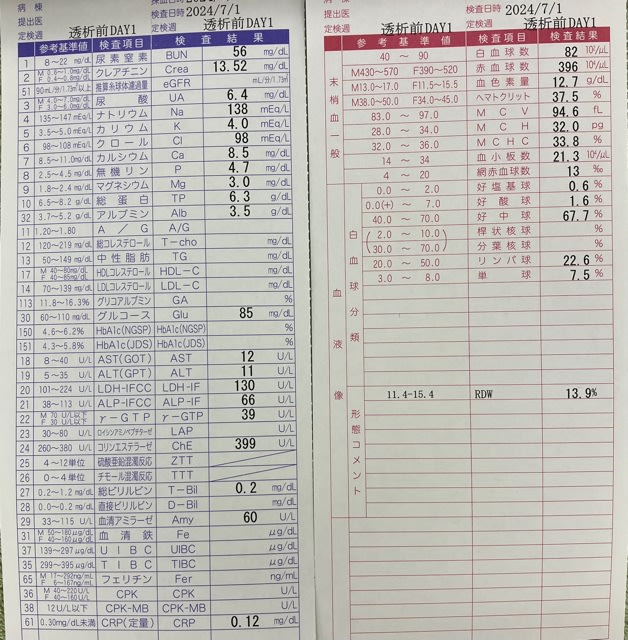 病 棟
提出医
定検週 透析前DAY1
検査日時 2024/7/1
参考基準値 検査項目 検 査 結 果
1 8~22 mg/dL 尿素窒素 BUN 56 mg/dL
2 クレアチニン Crea 13.52 mg/dL
51 推算糸球体濾過量 eGFR mL/分/1.73㎡
3 尿 酸 UA 6.4 mg/dL
4 135~147 mEq/L ナトリウム Na 138 mEq/L
5 3.5~5.0 mEq/L カ リ ウ ム K 4.0 mEq/L
6 98~108 mEq/L ク ロ ー ル Cl 98 mEq/L
7 8.5~11.0 mg/dL カルシウム Ca 8.5 mg/dL
8 2.5~4.5 mg/dL 無 機 リ ン P 4.7 mg/dL
9 1.8~2.4 mg/dL マグネシウム Mg 3.0 mg/dL
10 6.5~8.2 g/dL 総 蛋 白 TP 6.3 g/dL
32 3.7~5.2 g/dL アルブミン Alb 3.5 g/dL
11 1.20~1.80 A / G A/G
12 120~219 mg/dL 総コレステロール T-cho mg/dL
13 50~149 mg/dL 中 性 脂 肪 TG mg/dL
17 M 40~80mg/dL F 40~85mg/dL HDLコレステロール HDL-C mg/dL
14 70~139 mg/dL LDLコレステロール LDL-C mg/dL
113 11.8~16.3% グリコアルブミン GA %
30 60~110 mg/dL グルコース Glu 85 mg/dL
150 4.6~6.2% HbA1c(NGSP) HbA1c(NGSP) %
151 4.3~5.8% HbA1c(JDS) HbA1c(JDS) %
18 8~40 U/L AST(GOT) AST 12 U/L
19 5~35 U/L ALT(GPT) ALT 11 U/L
20 101~224 U/L LDH-IFCC LDH-IF 130 U/L
21 38~113 U/L ALP-IFCC ALP-IF 66 U/L
22 M 70 U/L以下 F 30 U/L以下 γ-GTP γ-GTP 39 U/L
23 30~80 U/L ロイシンアミノペプチターゼ LAP U/L
24 260~380 U/L コリンエステラーゼ ChE 399 U/L
25 4~12単位 硫酸亜鉛混濁反応 ZTT
26 0~4単位 チモール混濁反応 TTT
27 0.2~1.2 mg/dL 総ビリルビン T-Bil 0.2 mg/dL
28 0.0~0.2 mg/dL 直接ビリルビン D-Bil mg/dL
29 33~115 U/L 血清アミラーゼ Amy 60 U/L
31 M 50~180μg/dl F 40~160μg/dl 血 清 鉄 Fe μg/dL
37 139~297μg/dl U I B C UIBC μg/dL
35 299~395μg/dl T I B C TIBC μg/dL
65 M 17~292ng/mL F 6~167ng/mL フェリチン Fer ng/mL
36 M 40~220 U/L F 40~160 U/L CPK CPK U/L
38 12U/L以下 CPK-MB CPK-MB U/L
61 0.30mg/dL未満 CRP(定量) CRP 0.12 mg/dL
病 棟
提出医
定検週 透析前DAY1
検査日時 2024/7/1
参 考 基 準 値 検査項目 検査結果
末梢血一般
40 ~ 90 白 血 球 数 82 10²/μL
M430~570 F390~520 赤 血 球 数 396 10⁴/μL
M13.0~17.0 F11.5~15.5 血 色 素 量 12.7 g/dL
M38.0~50.0 F34.0~45.0 ヘマトクリット 37.5 %
83.0 ~ 97.0 M C V 94.6 fL
28.0 ~ 34.0 M C H 32.0 pg
32.0 ~ 36.0 M C H C 33.8 %
14 ~ 34 血 小 板 数 21.3 10⁴/μL
4 ~ 20 網赤血球数 13 ‰
血液像
白血球分類
0.0 ~ 2.0 好 塩 基 球 0.6 %
0.0(+) ~ 7.0 好 酸 球 1.6 %
40.0 ~ 70.0 好 中 球 67.7 %
(2.0 ~ 10.0) 桿 状 核 球
(30.0 ~ 70.0) 分 葉 核 球
20.0 ~ 50.0 リ ン パ 球 22.6 %
3.0 ~ 8.0 単 球 7.5 %
形態コメント
11.4-15.4 RDW 13.9%